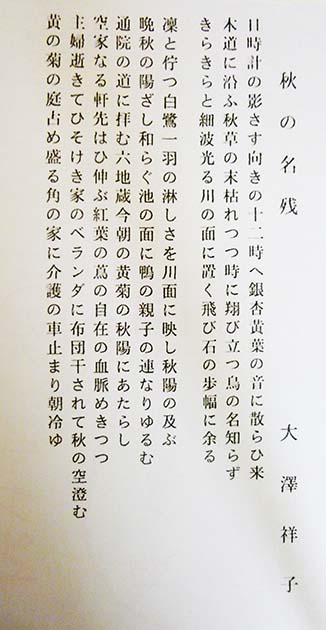 秋の名残
大澤祥子
日時計の影さす向きの十二時へ銀杏黄葉の音に散らひ来
木道に沿ふ秋草の末枯れつつ時に翔び立つ鳥の名知らず
きらきらと細波光る川の面に置く飛び石の歩幅に余る
凜と佇つ白鷺一羽の淋しさを川面に映し秋陽の及ぶ
晩秋の陽ざし和らぐ池の面に鴨の親子の連なりゆるむ
通院の道に拝む六地蔵今朝の黄菊の秋陽にあたらし
空家なる軒先はひ伸ぶ紅葉の蔦の自在の血脈めきつつ
主婦逝きてひそけき家のベランダに布団干されて秋の空澄む
黄の菊の庭占め盛る角の家に介護の車止まり朝冷ゆ